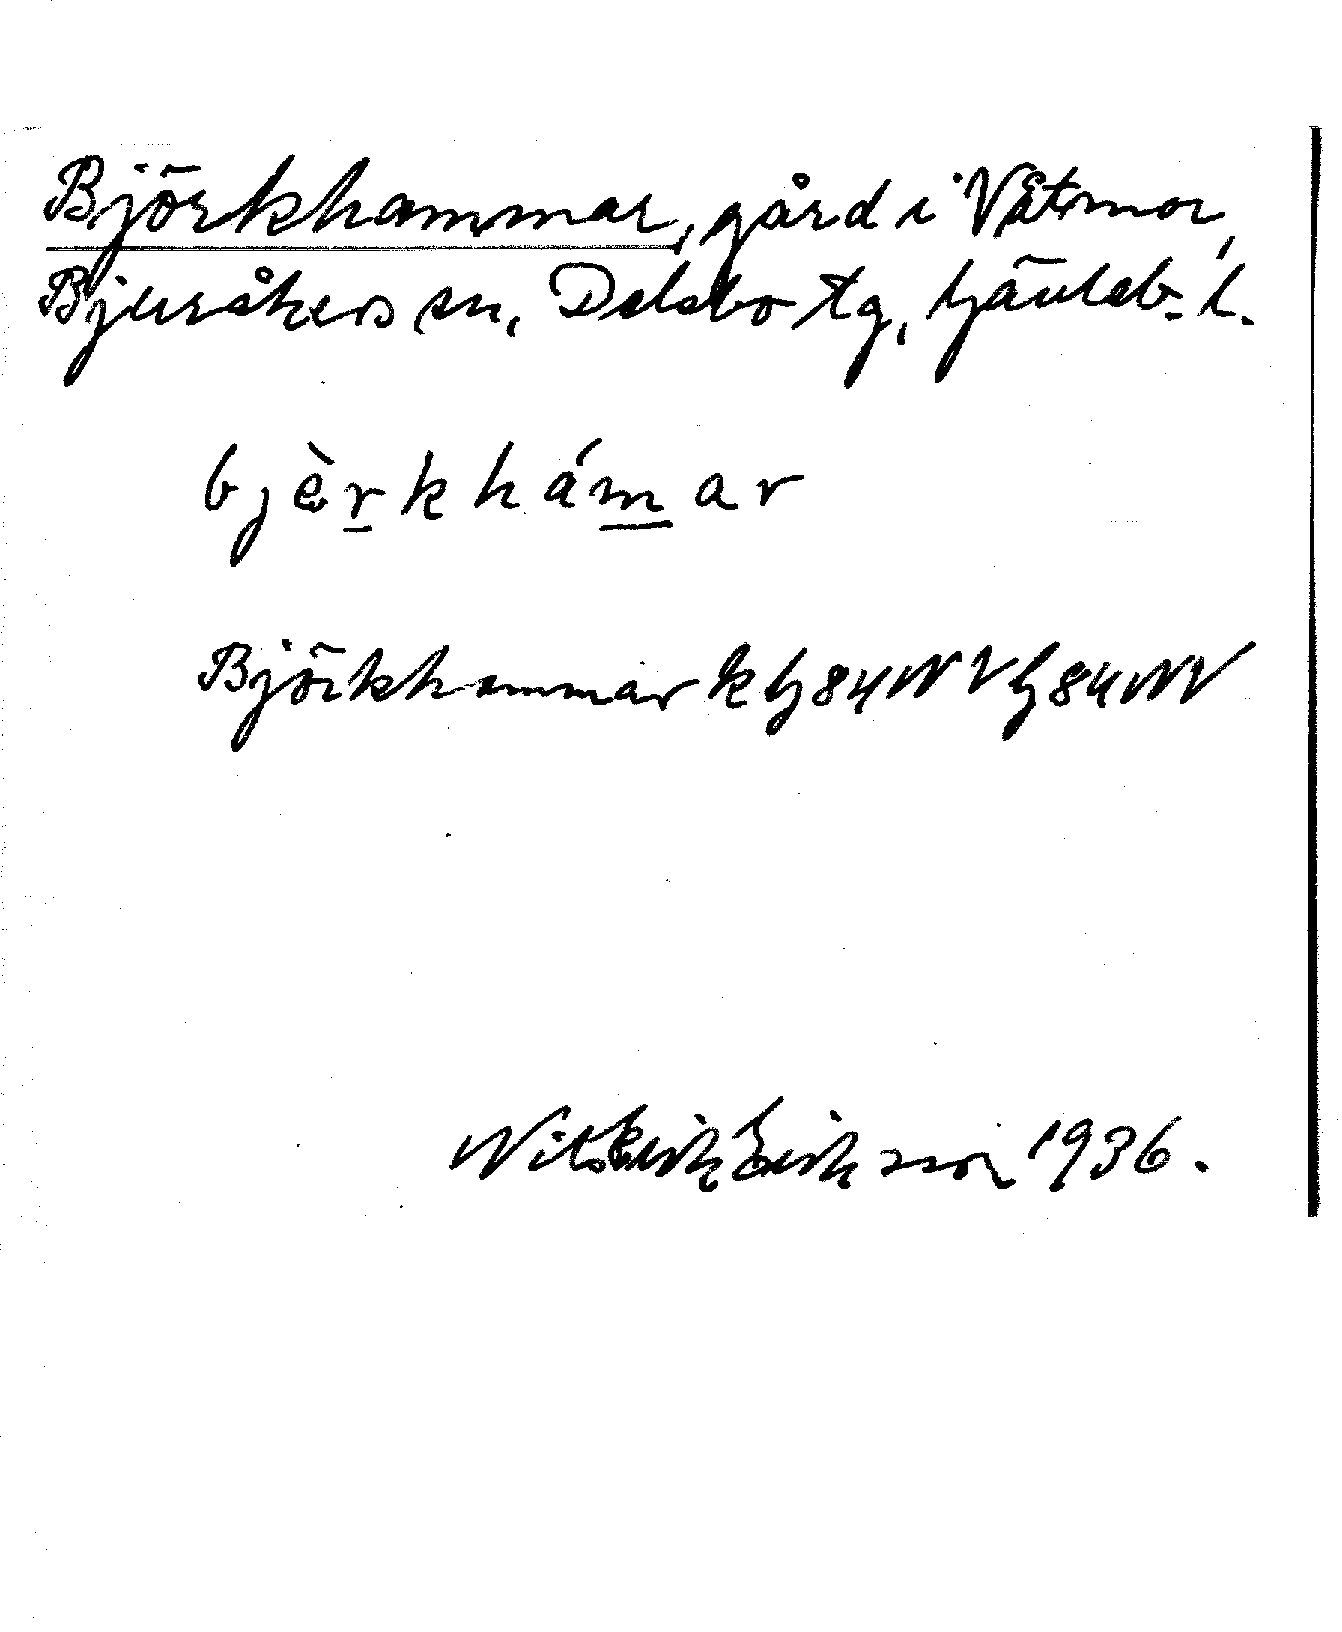 Björkhammar, gård i Våtmor,
Bjuråkers sn, Delsbo tg, Gävleb. l.
bjèrkhámar
Björkhammar k G84NV G84NV
Nils Erik Eriksson 1936.